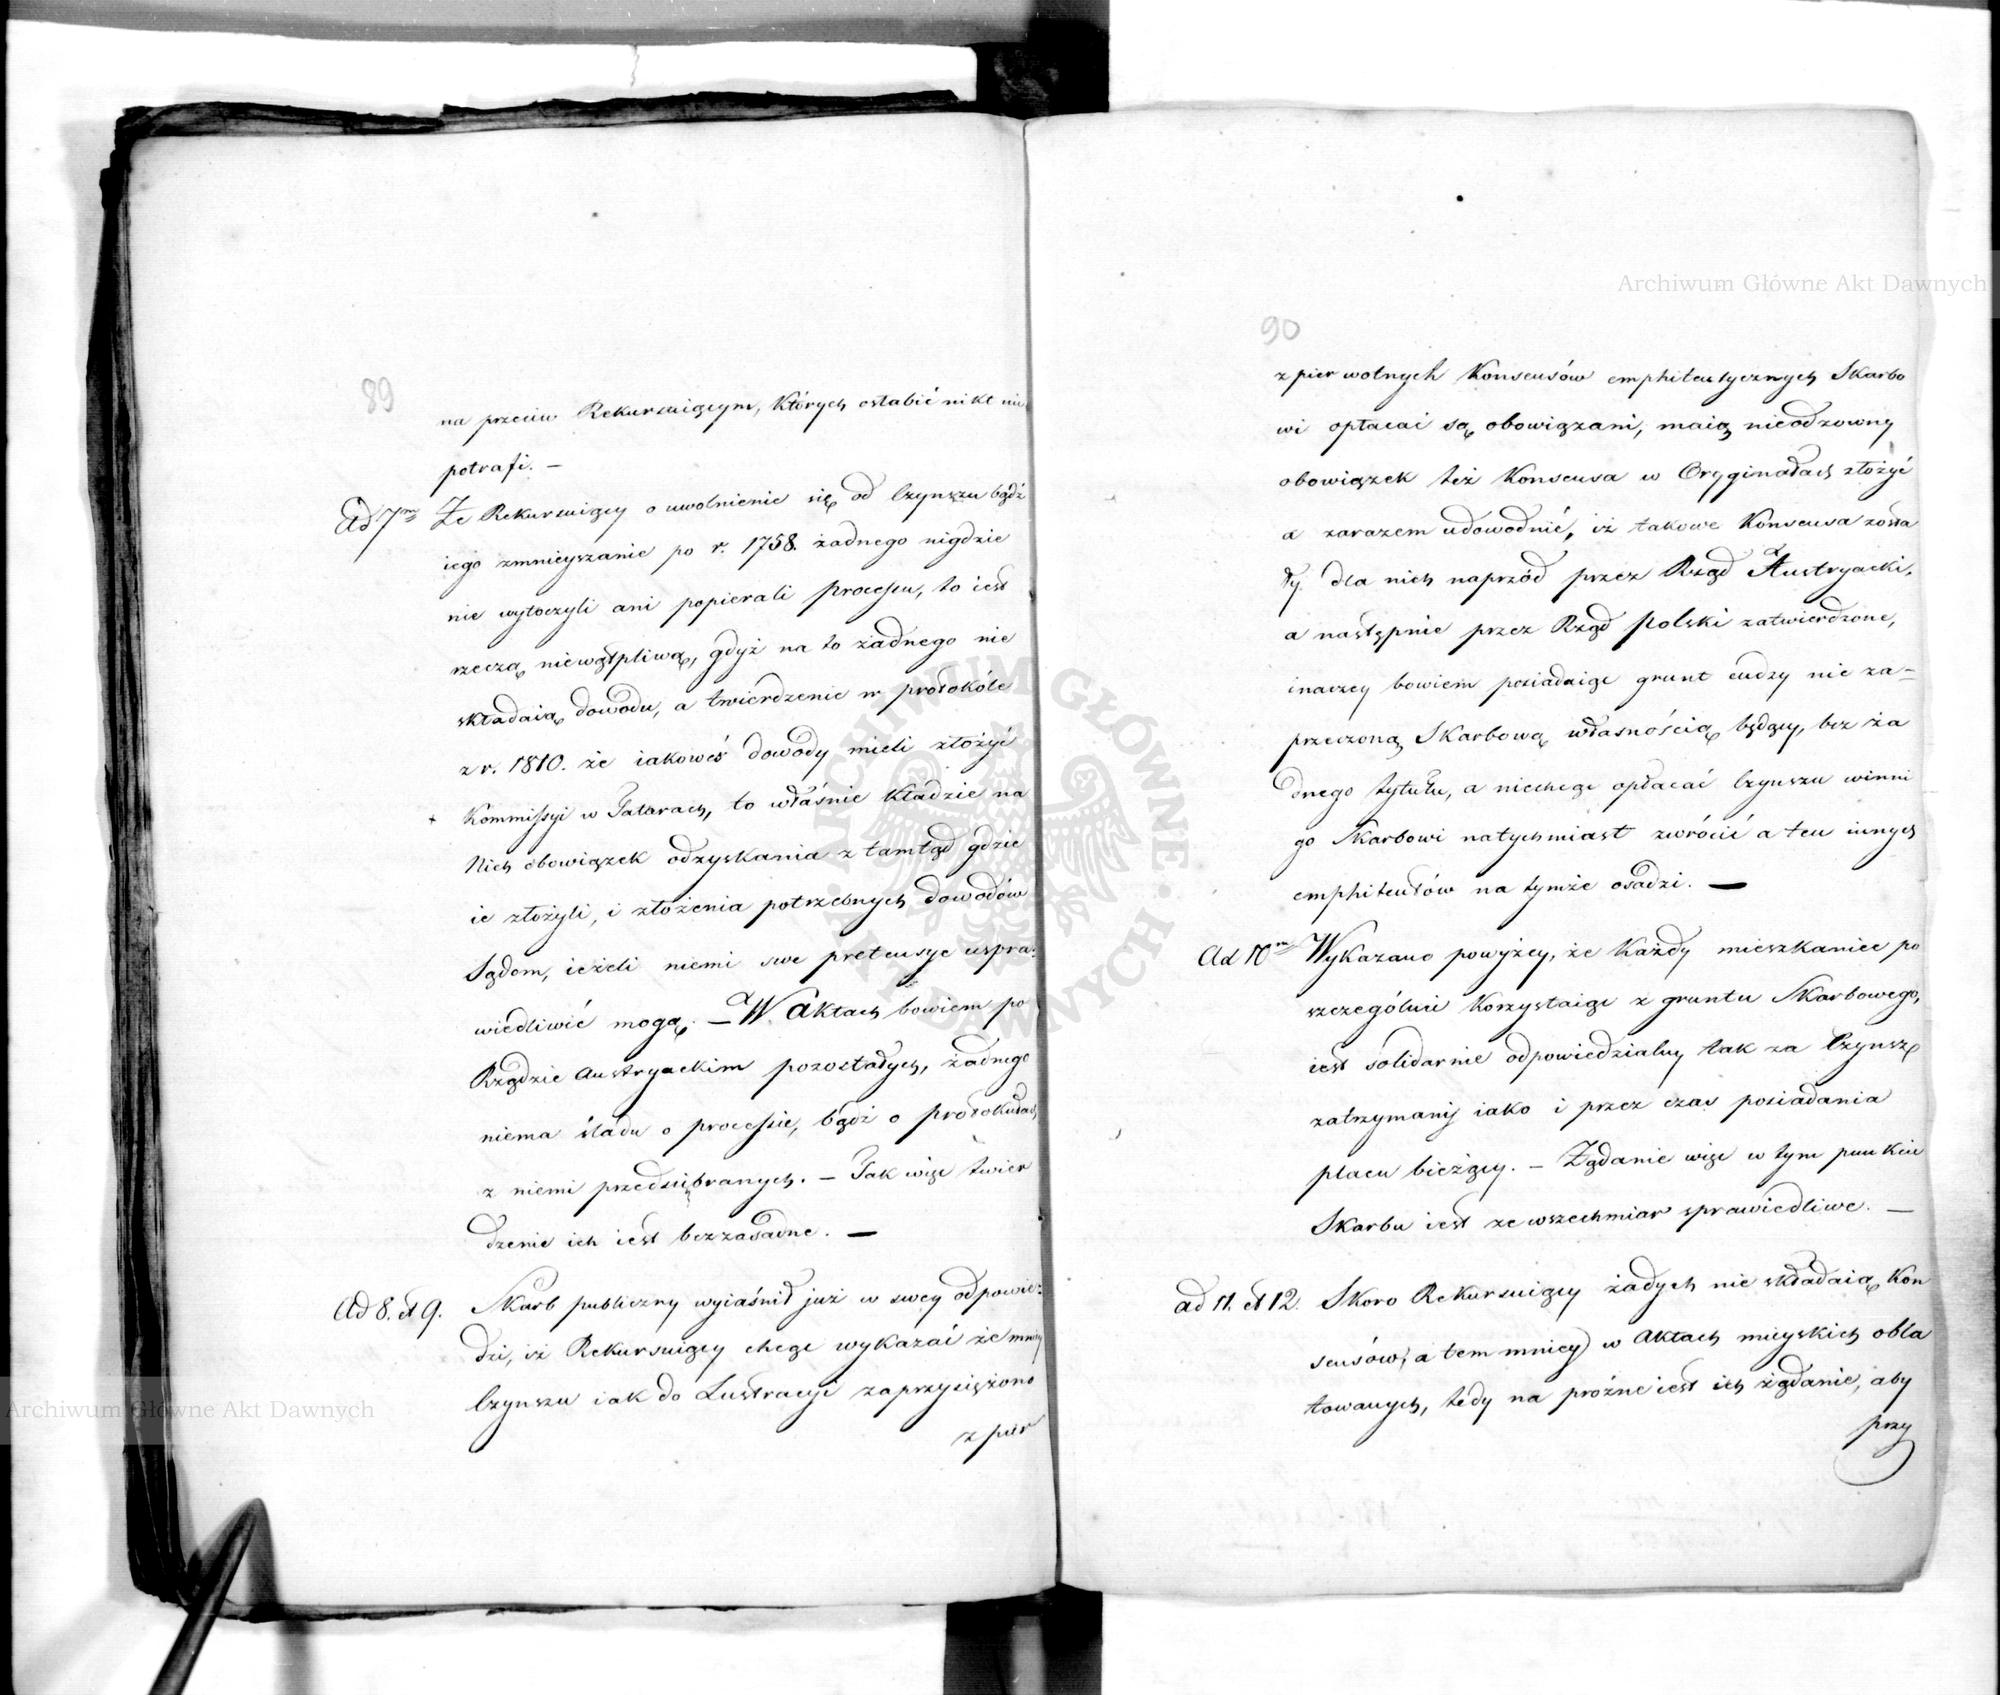 89
na przeciw Rekursuiącym, których osłabić nikt nie
potrafi. —
Ad 7m Że Rekursuiący o uwolnienie się od Czynszu bądź
iego zmnieyszanie po r. 1758. żadnego nigdzie
nie wytoczyli ani popierali processu, to iest
rzeczą niewątpliwą, gdyż na to żadnego nie
składaią dowodu, a twierdzenie w protokóle
z r. 1810. że iakoweś dowody mieli złożyć
Kommissyi w Tatarach, to właśnie kładzie na
Nich obowiązek odzyskania z tamtąd gdzie
ie złożyli, i złożenia potrzebnych dowodów
Sądom, ieżeli niemi swe pretensye uspra-
wiedliwić mogą. — W Aktach bowiem po
Rządzie Austryackim pozostałych, żadnego
niema śladu o processie, bądź o protokułach
z niemi przedsiębranych. — Tak więc twier
dzenie ich iest bezzasadne. —
Ad 8. et 9. Skarb publiczny wyiaśnił już w swey odpowie-
dzi, iż Rekursuiący chcąc wykazać że mniey
Czynszu iak do Lustracyi zaprzysiężono
z pier
90
z pierwotnych Konsensów emphiteutycznych Skarbo
wi opłacać są obowiązani, maią nieodzowny
obowiązek też Konsensa w Oryginałach złożyć
a zarazem udowodnić, iż takowe Konsensa zosta
ły dla nich naprzód przez Rząd Austryacki,
a następnie przez Rząd Polski zatwierdzone,
inaczey bowiem posiadaiąc grunt cudzy nie za-
przeczoną Skarbową własnością będący, bez ża
dnego tytułu, a niechcąc opłacać Czynszu winni
go Skarbowi natychmiast zwrócić a ten innych
emphiteutów na tymże osadzi. —
Ad 10m Wykazano powyżey, że każdy mieszkaniec po
szczególnie korzystaiąc z gruntu Skarbowego,
iest solidarnie odpowiedzialny tak za Czynsz
zatrzymany iako i przez czas posiadania
placu bieżący. — Żądanie więc w tym punkcie
Skarbu iest ze wszechmiar sprawiedliwe. —
ad 11. et 12. Skoro Rekursuiący żadych nie składaią Kon
sensów, a tem mniey w Aktach mieyskich obla
towanych, tedy na próżne iest ich żądanie, aby
przy
Archiwum Główne Akt Dawnych
Archiwum Główne Akt Dawnych
ARCHIWUM GŁÓWNE AKT DAWNYCH